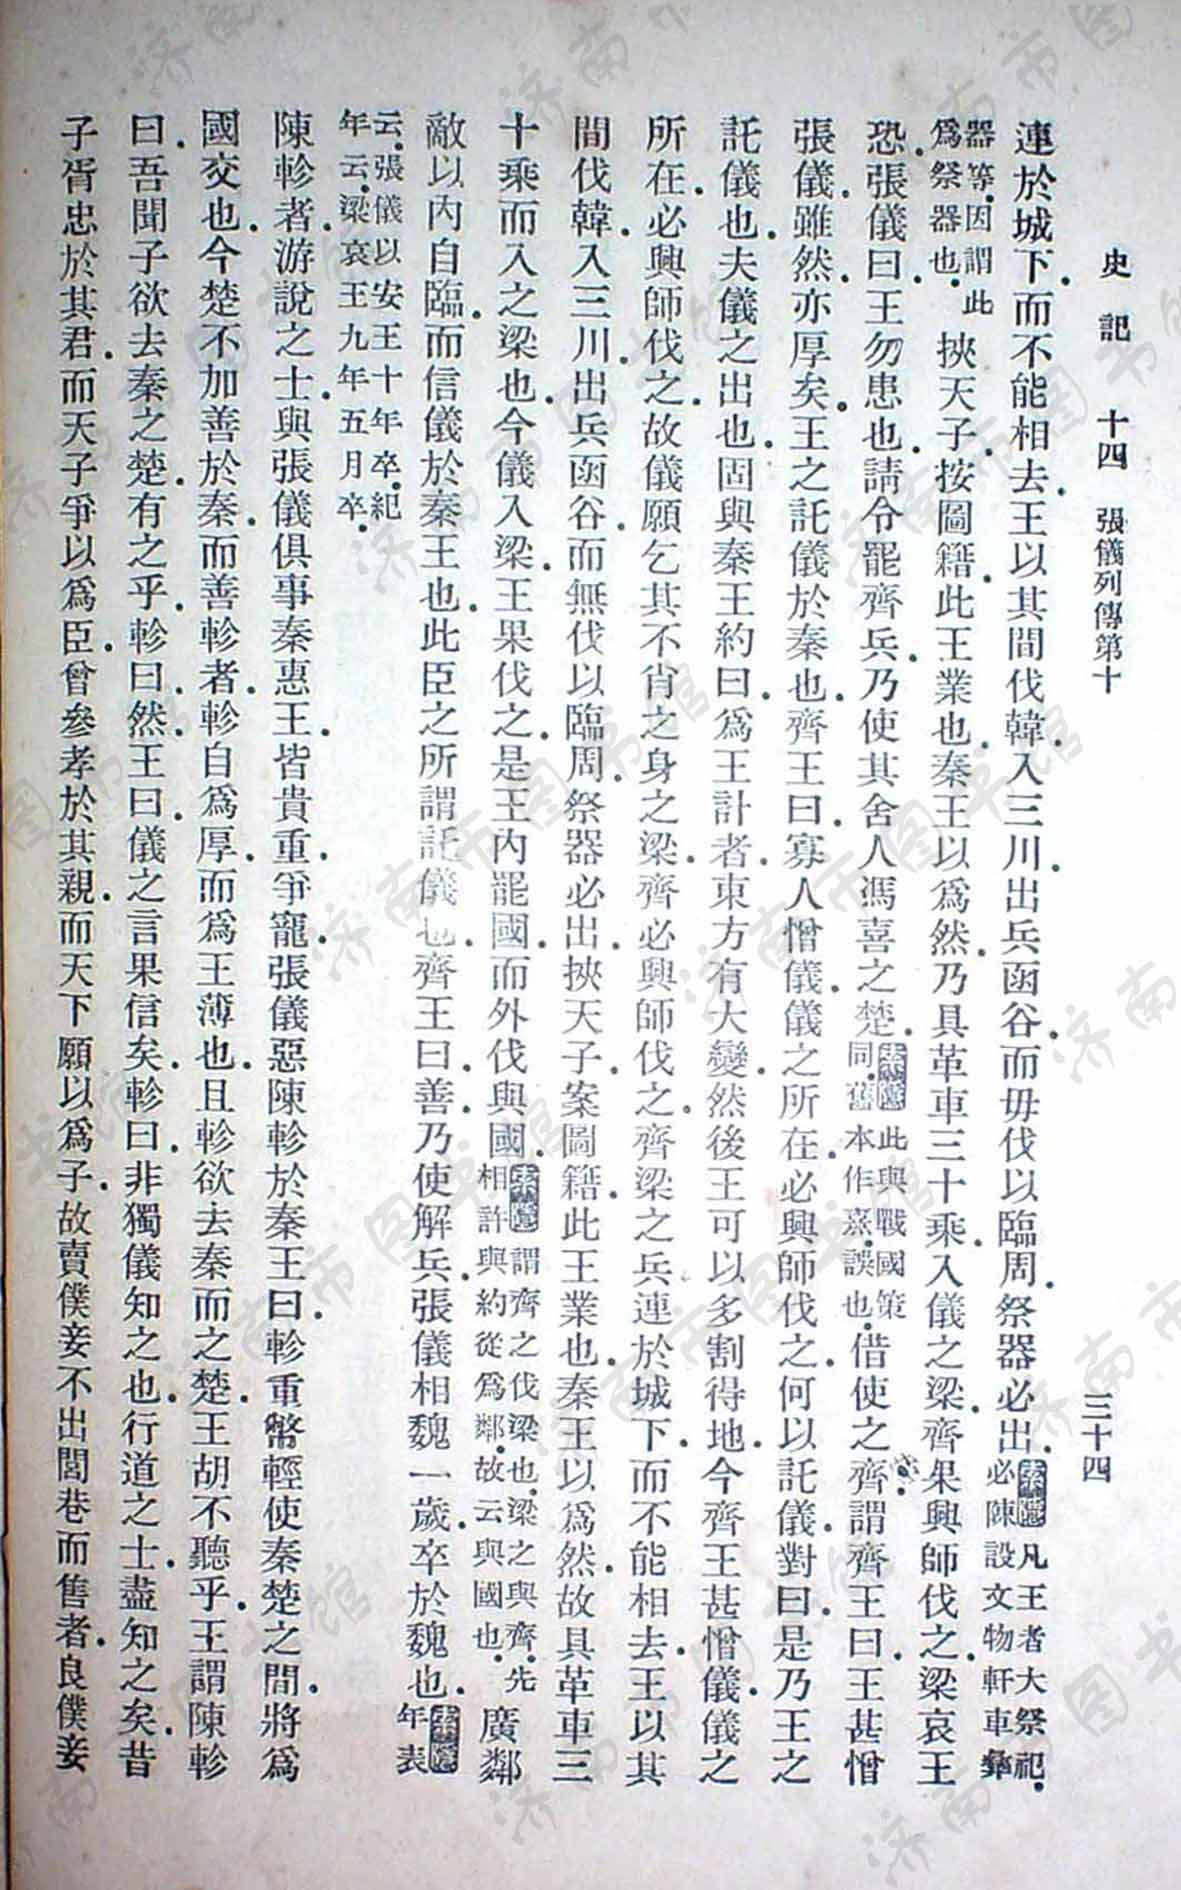 史記　十四　張儀列傳第十　三十四
連於城下.而不能相去.王以其間伐韓.入三川.出兵函谷.而毋伐以臨周.祭器必出.索隱凡王者大祭祀.必陳設文物軒車彝
器等.因謂此爲祭器也.挾天子.按圖籍.此王業也.秦王以爲然.乃具革車三十乘.入儀之梁.齊果興師伐之.梁哀王
恐.張儀曰.王勿患也.請令罷齊兵.乃使其舍人馮喜之楚.索隱此與戰國策同.舊本作憙.誤也.借使之齊.謂齊王曰.王甚憎
張儀.雖然.亦厚矣.王之託儀於秦也.齊王曰.寡人憎儀.儀之所在.必興師伐之.何以託儀.對曰.是乃王之
託儀也.夫儀之出也.固與秦王約曰.爲王計者.東方有大變.然後王可以多割得地.今齊王甚憎儀.儀之
所在.必興師伐之.故儀願乞其不肖之身之梁.齊必興師伐之.齊梁之兵連於城下.而不能相去.王以其
間伐韓.入三川.出兵函谷.而無伐以臨周.祭器必出.挾天子.案圖籍.此王業也.秦王以爲然.故具革車三
十乘而入之梁也.今儀入梁.王果伐之.是王內罷國.而外伐與國.索隱謂齊之伐梁也.梁之與齊.先相許與約從爲鄰.故云與國也.廣鄰
敵以內自臨.而信儀於秦王也.此臣之所謂託儀也.齊王曰.善.乃使解兵.張儀相魏一歲.卒於魏也.索隱年表
云.張儀以安王十年卒.紀年云.梁哀王九年五月卒.
陳軫者.游說之士.與張儀俱事秦惠王.皆貴重.爭寵.張儀惡陳軫於秦王曰.軫重幣輕使秦楚之間.將爲
國交也.今楚不加善於秦.而善軫者.軫自爲厚.而爲王薄也.且軫欲去秦而之楚.王胡不聽乎.王謂陳軫
曰.吾聞子欲去秦之楚.有之乎.軫曰.然.王曰.儀之言果信矣.軫曰.非獨儀知之也.行道之士.盡知之矣.昔
子胥忠於其君.而天子爭以爲臣.曾參孝於其親.而天下願以爲子.故賣僕妾不出閭巷而售者.良僕妾
济南市图书馆